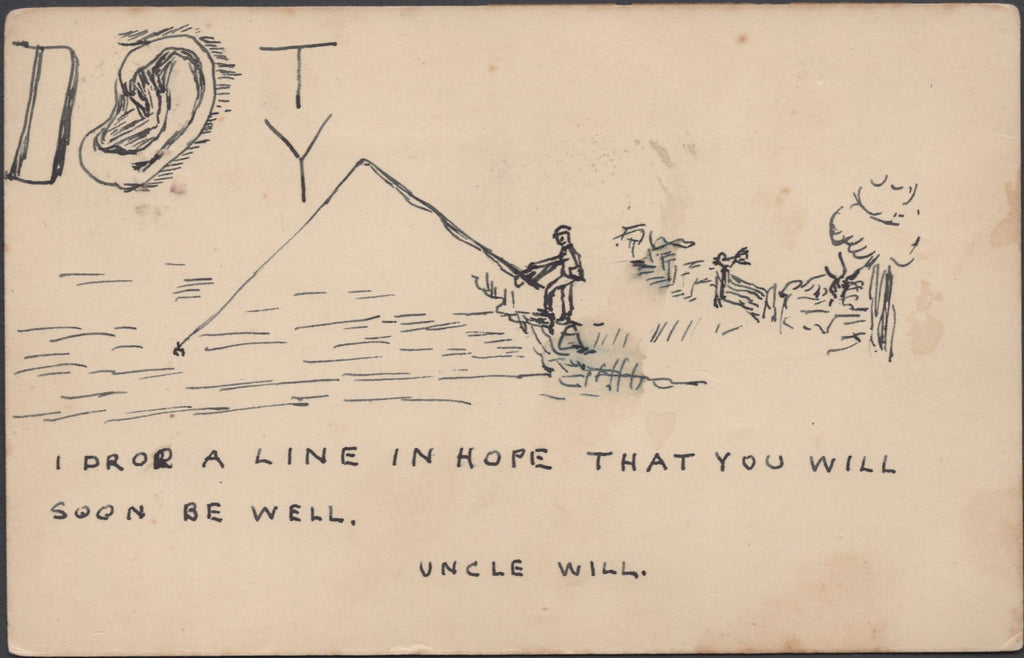 D T
Y
I DROP A LINE IN HOPE THAT YOU WILL
SOON BE WELL.
UNCLE WILL.